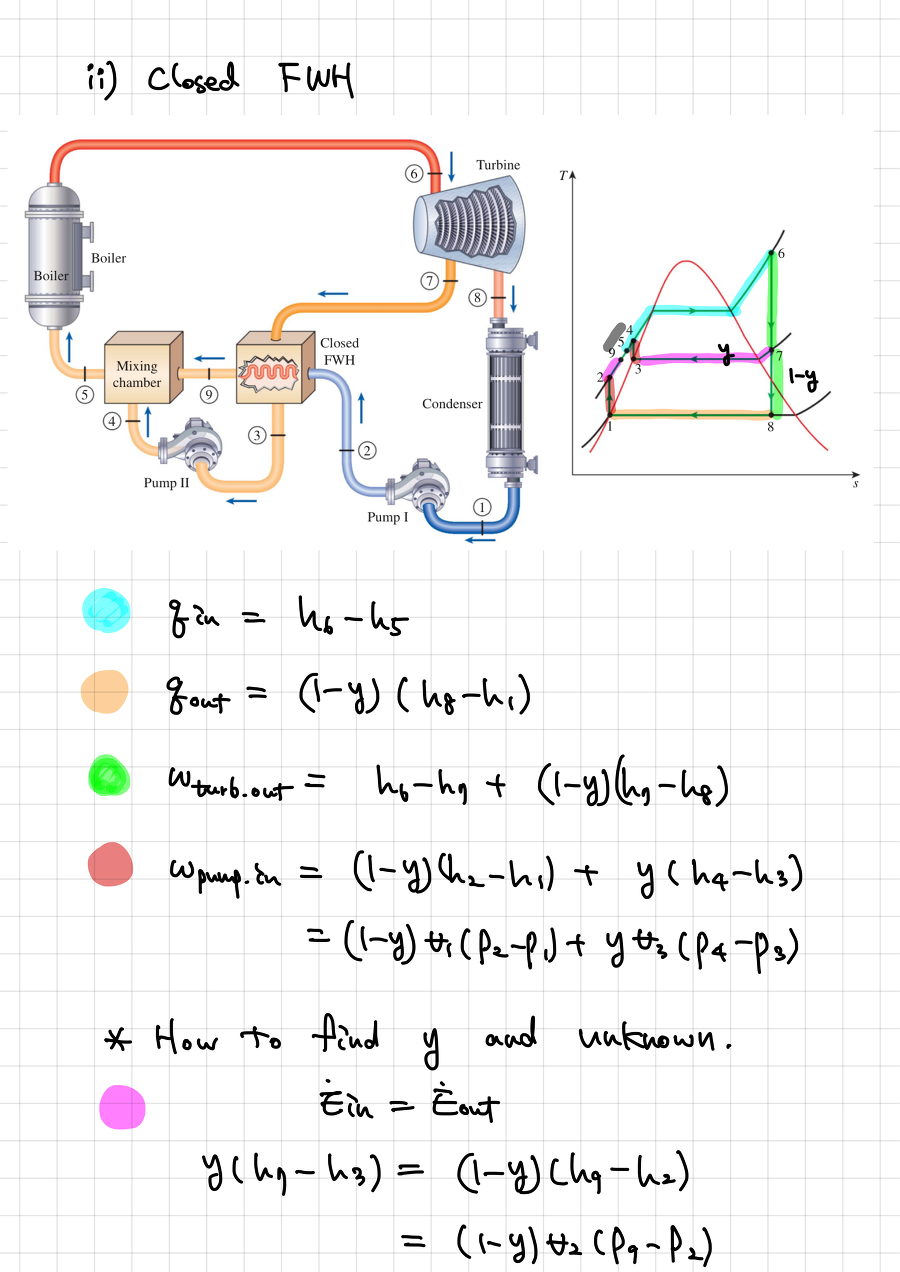 ii) Closed FWH
Turbine
Boiler
Boiler
Mixing
chamber
Closed
FWH
Condenser
Pump II
Pump I
⑥
⑦
⑧
⑤
⑨
④
③
②
①
T
6
4
5
9
y
7
3
2
1-y
1
8
s
q in = h₆ - h₅
q out = (1-y) (h₈-h₁)
w turb.out = h₆-h₇ + (1-y)(h₇-h₈)
w pump.in = (1-y)(h₂-h₁) + y(h₄-h₃)
= (1-y) v₁(P₂-P₁) + y v₃ (P₄-P₃)
* How to find y and unknown.
Ėin = Ėout
y(h₇-h₃) = (1-y)(h₉-h₂)
= (1-y) v₂ (P₉-P₂)